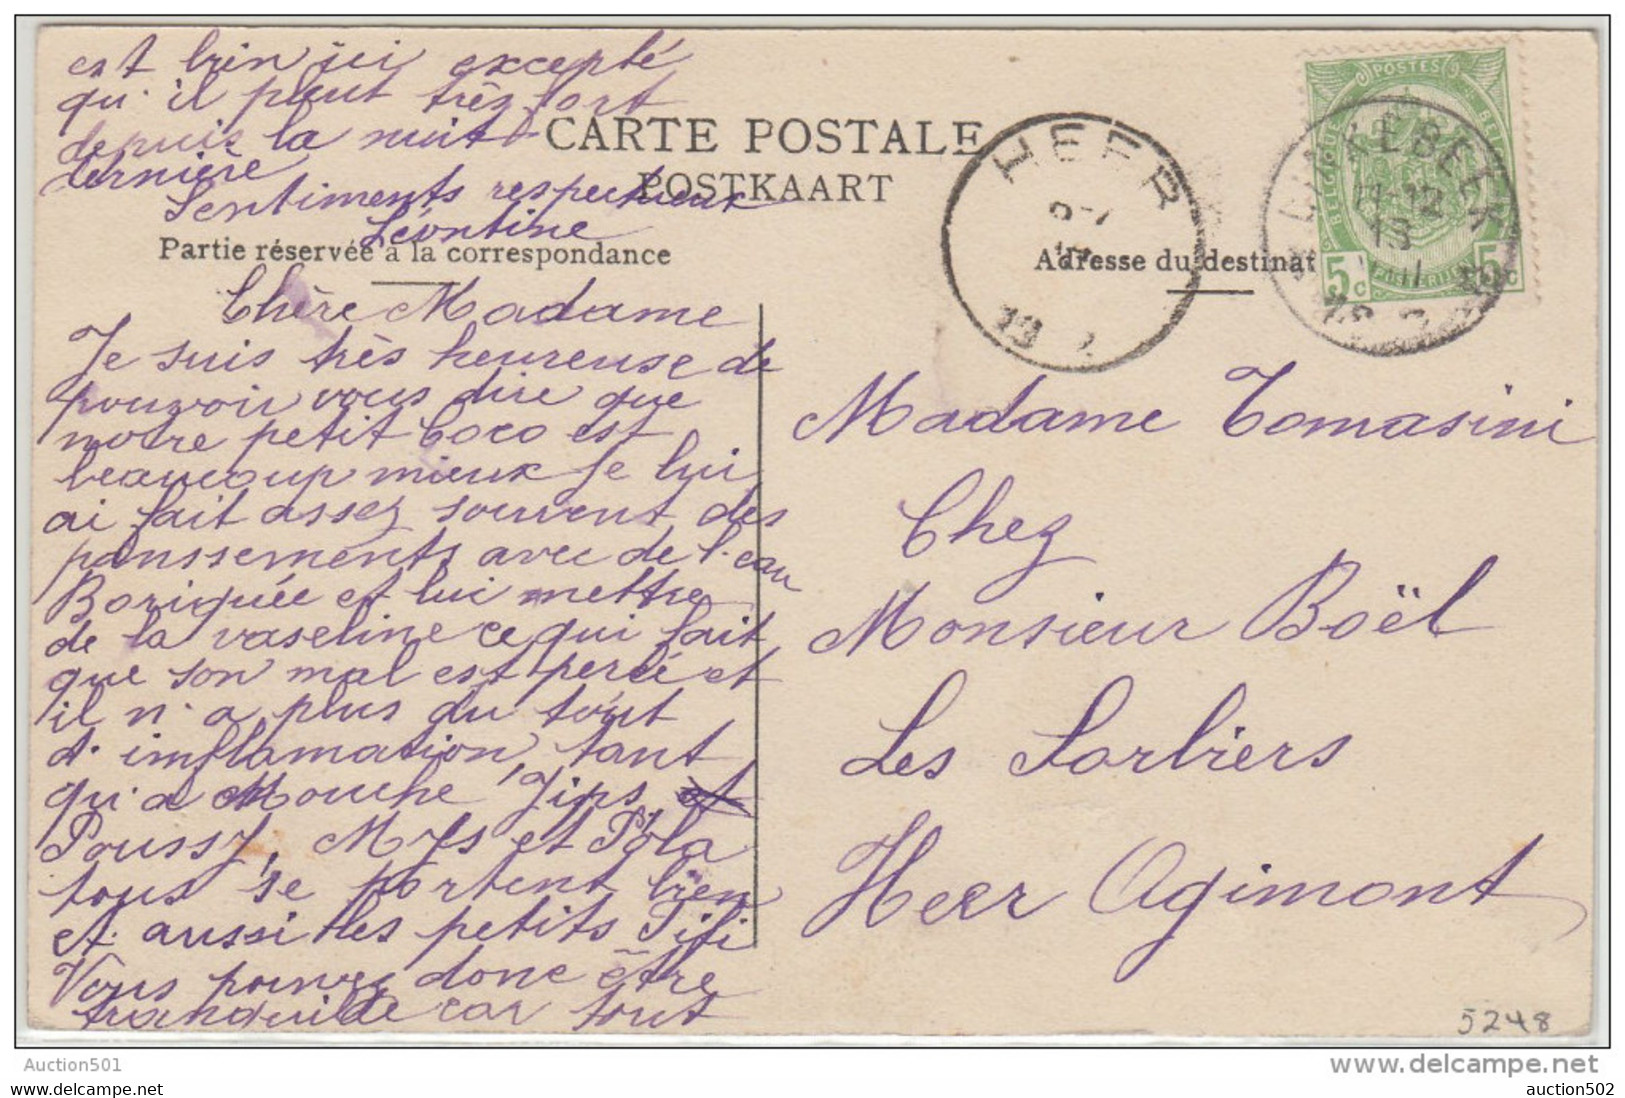 est bien ici excepté
qu'il pleut très fort
depuis la nuit
dernière
Sentiments respectueux
Léontine
CARTE POSTALE
POSTKAART
Partie réservée à la correspondance
Adresse du destinat
Chère Madame
Je suis très heureuse de
pouvoir vous dire que
notre petit Coco est
beaucoup mieux Je lui
ai fait assez souvent des
panssements avec de l'eau
Boriquée et lui mettre
de la vaseline ce qui fait
que son mal est percé et
il n'a plus du tout
d'inflamation, tant
qu'a Mouche, Jips,
Poussy, Mys et Pola
tous se portent bien
et aussi les petits Fifi
Vous pouvez donc être
tranquilde car tout
Madame Tomasini
Chez
Monsieur Boël
Les Sorbiers
Heer Agimont
HEER
POSTES
BELGIQUE
BELGIË
5c
5c
11-12
13
5248
Auction501
delcampe.net
http://www.delcampe.net
auction502